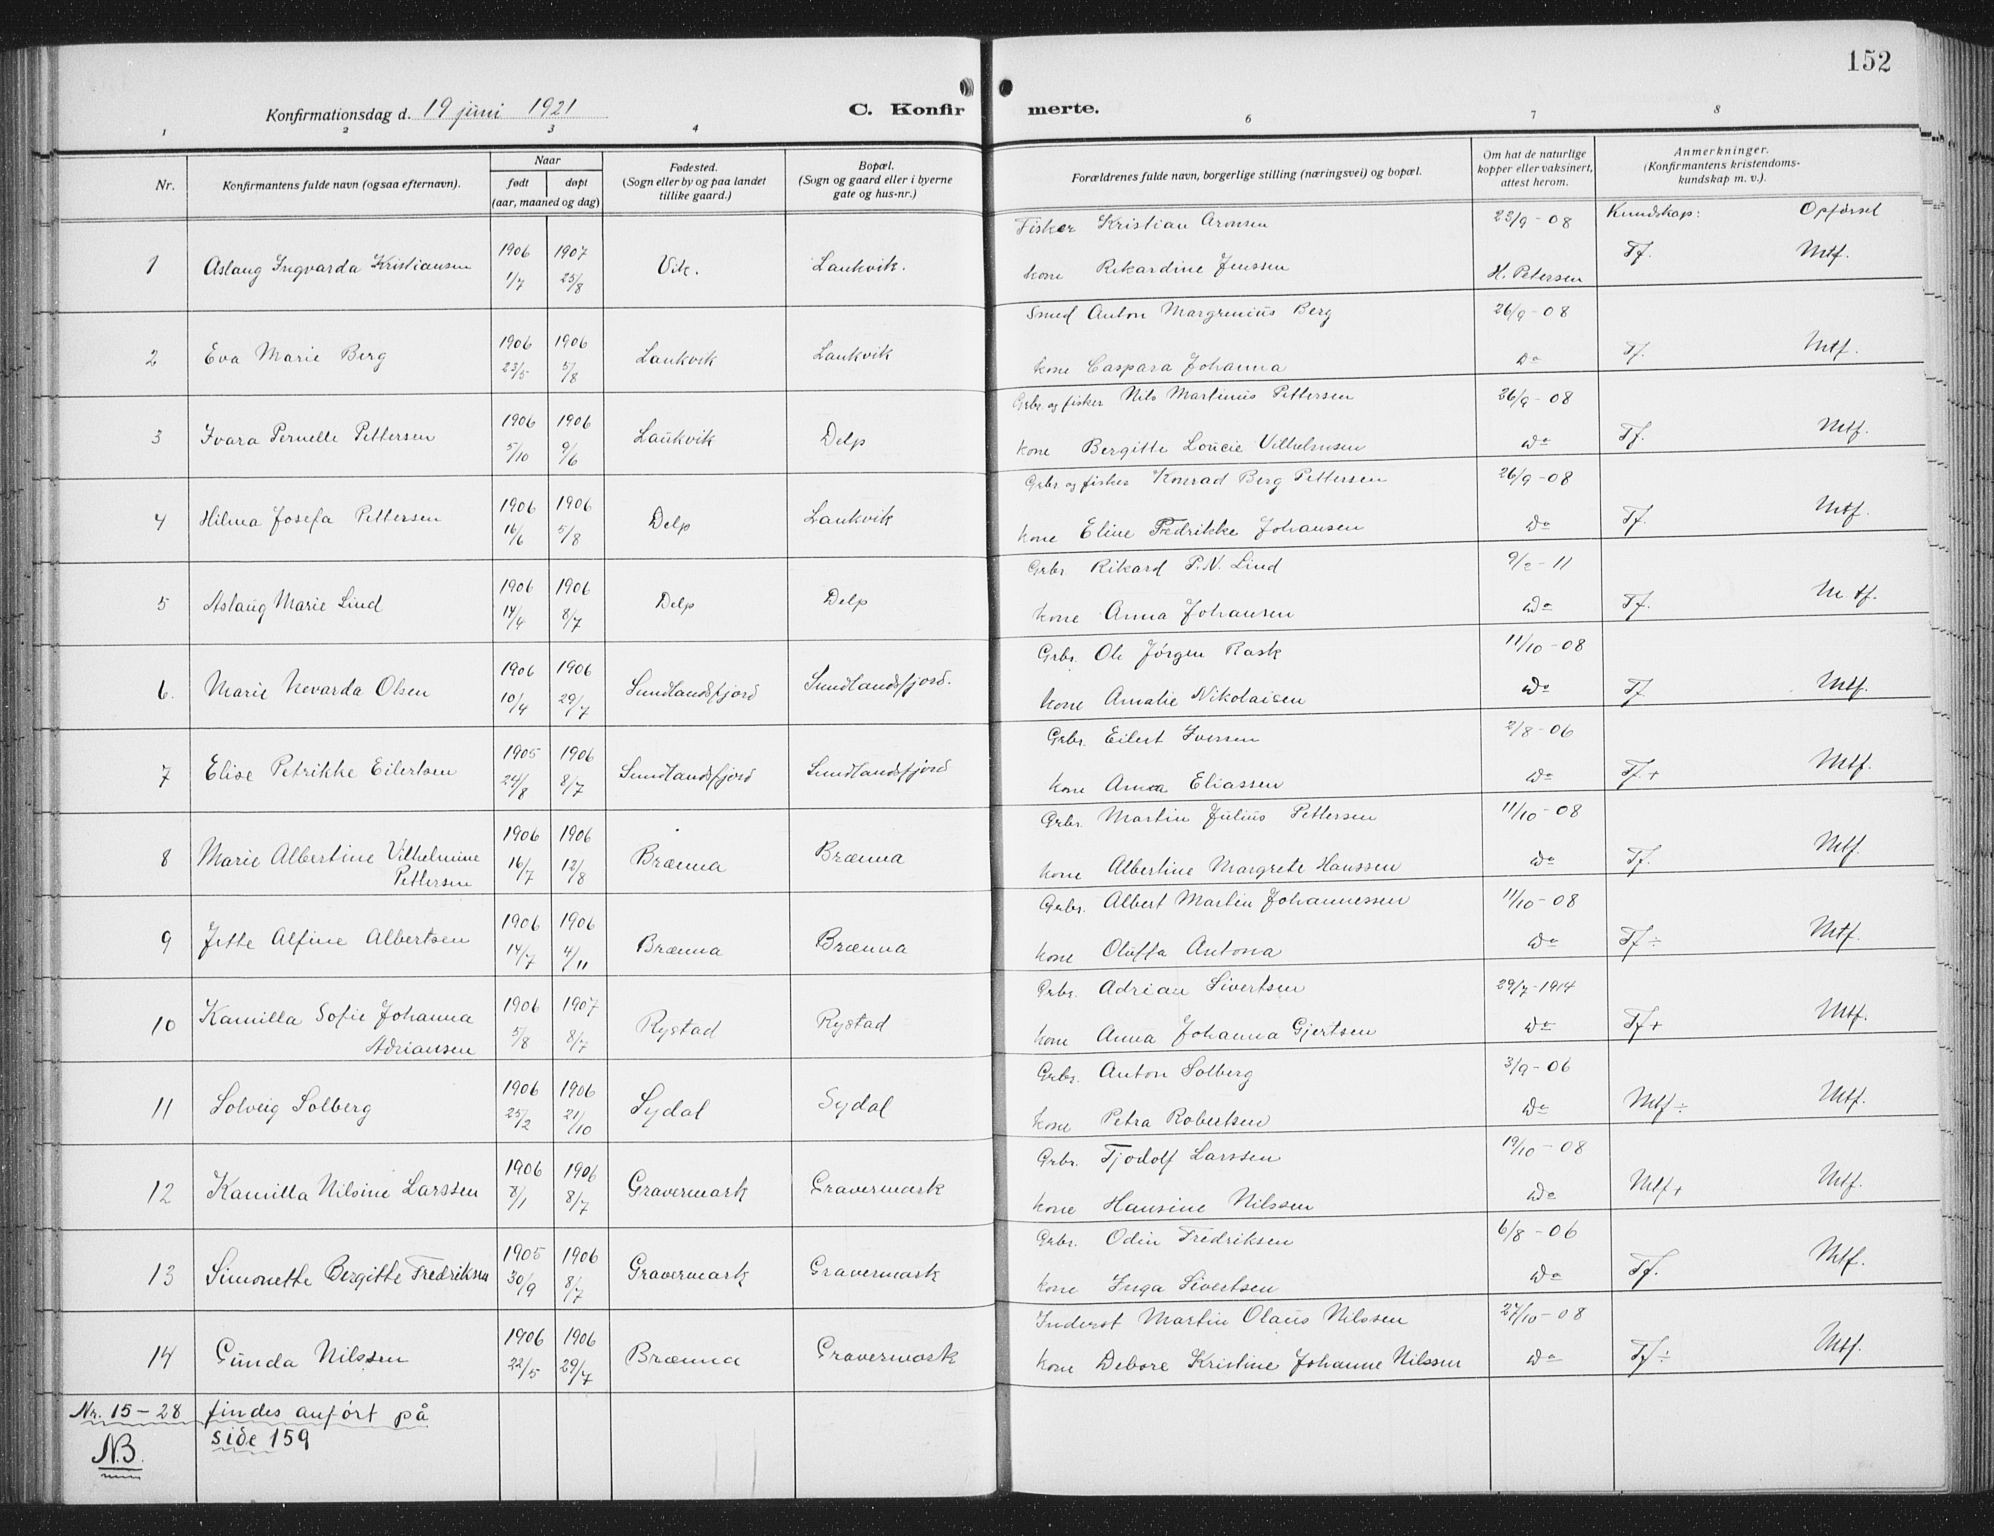 152
Konfirmationsdag d. 19 juni 1921 C. Konfirmerte.
1 2 3 4 6 7 8
Nr. Konfirmantens fulde navn (ogsaa efternavn). Naar født døpt (aar, maaned og dag) Fødested. (Sogn eller by og paa landet tillike gaard.) Bopæl. (Sogn og gaard eller i byerne gate og hus-nr.) Forældrenes fulde navn, borgerlige stilling (næringsvei) og bopæl. Om hat de naturlige kopper eller vaksinert, attest herom. Anmerkninger. (Konfirmantens kristendomskundskap m. v.).
Kundskap: Opførsel
1 Aslaug Ingvarda Kristiansen 1906 1/7 1907 25/8 Vik. Laukvik. Fisker Kristian Aronsen 23/9-08 Tf. Mtf.
kone Rikardine Jenssen H. Petersen
2 Eva Marie Berg 1906 23/5 1906 5/8 Laukvik Laukvik Smed Anton Margrenius Berg 26/9-08 Tf. Mtf.
kone Caspara Johanna Do
3 Ivara Pernelle Pettersen 1906 5/10 1906 9/6 Laukvik Delp Grbr og fisker Nils Martinus Pettersen 26/9-08 Tf. Mtf.
kone Bergitte Loucie Vilhelmsen Do
4 Hilma Josefa Pettersen 1906 16/6 1906 5/8 Delp Laukvik Grbr og fisker Konrad Berg Pettersen 26/9-08 Tf. Mtf.
kone Eline Fredrikke Johansen Do
5 Aslaug Marie Lind 1906 14/4 1906 8/7 Delp Delp Grbr. Rikard P.N. Lind 9/2-11 Tf. Mtf.
kone Anna Johansen Do
6. Marie Nevarda Olsen 1906 10/4 1906 29/7 Sundlandsfjord Sundlandsfjord. Grbr. Ole Jørgen Rask 11/10-08 Tf Mtf.
kone Amalie Nikolaisen Do
7 Elise Petrikke Eilertsen 1905 24/8 1906 8/7 Sundlandsfjord Sundlandsfjord Grbr. Eilert Iversen 2/8-06 Tf.+ Mtf.
kone Anna Eliassen Do
8 Marie Albertine Vilhelmine Pettersen 1906 16/7 1906 12/8 Brænna Brænna Grbr. Martin Julius Pettersen 11/10-08 Tf. Mtf.
kone Albertine Margrete Hanssen Do
9 Jette Alfine Albertsen 1906 14/7 1906 4/11 Brænna Brænna Grbr. Albert Martin Johannessen 11/10-08 Tf÷ Mtf.
kone Oluffa Antona Do
10 Kamilla Sofie Johanna Adriansen 1906 5/8 1907 8/7 Rystad Rystad Grbr. Adrian Sivertsen 29/7-1914 Tf+ Mtf.
kone Anna Johanna Gjertsen Do
11 Solveig Solberg 1906 25/2 1906 21/10 Sydal Sydal Grbr. Anton Solberg 3/9-06 Mtf÷ Mtf.
kone Petra Robertsen Do
12 Kamilla Nilsine Larssen 1906 8/1 1906 8/7 Gravermark Gravermark Grbr. Tjodolf Larssen 19/10-08 Mtf+ Mtf.
kone Hansine Nilssen Do
13 Simonette Bergitte Fredriksen 1905 30/9 1906 8/7 Gravermark Gravermark Grbr. Odin Fredriksen 6/8-06 Tf. Mtf.
kone Inga Sivertsen Do
14 Gunda Nilssen 1906 22/5 1906 29/7 Brænna Gravermark Inderst Martin Olaus Nilssen 27/10-08 Tf÷ Mtf.
kone Debore Kristine Johanne Nilssen Do
Nr. 15-28 findes anført på
side 159
NB.